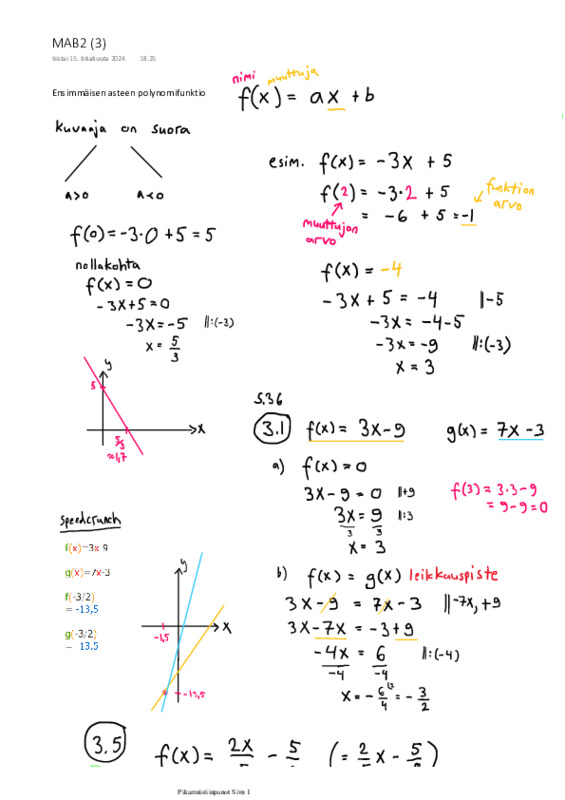 MAB2 (3)
tiistai 15. lokakuuta 2024 18.25
Ensimmäisen asteen polynomifunktio
nimi muuttuja
f(x) = ax + b
kuvaaja on suora
a>0 a<0
f(0) = -3·0 + 5 = 5
nollakohta
f(x) = 0
-3x+5=0
-3x=-5 ||:(-3)
x = 5/3
y
5
x
5/3
≈1,7
esim. f(x) = -3x + 5
f(2) = -3·2 + 5
= -6 + 5 = -1
funktion
arvo
muuttujan
arvo
f(x) = -4
-3x + 5 = -4 |-5
-3x = -4-5
-3x = -9 ||:(-3)
x = 3
S.36
3.1 f(x) = 3x-9 g(x) = 7x-3
a) f(x) = 0
3x - 9 = 0 ||+9
3x = 9 ||:3
3 3
x = 3
f(3) = 3·3-9
= 9-9=0
Speedcrunch
f(x)=3x-9
g(x)=7x-3
f(-3/2)
= -13,5
g(-3/2)
= 13,5
y
x
-1,5
-13,5
b) f(x) = g(x) leikkauspiste
3x - 9 = 7x - 3 ||-7x, +9
3x - 7x = -3 + 9
-4x = 6 ||:(-4)
-4 -4
x = - 6/4 = - 3/2
3.5 f(x) = 2x